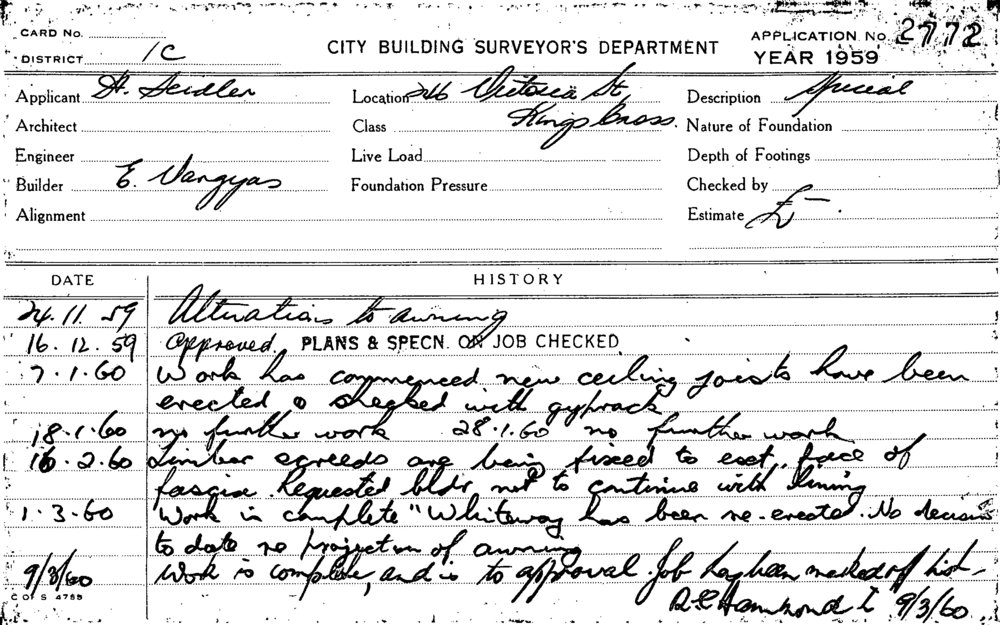 CARD No.
DISTRICT 1C
CITY BUILDING SURVEYOR'S DEPARTMENT
APPLICATION No. 2772
YEAR 1959
Applicant H. Seidler
Location 246 Victoria St,
Kings Cross.
Description Special
Architect
Class
Nature of Foundation
Engineer
Live Load
Depth of Footings
Builder E. Vargyas
Foundation Pressure
Checked by
Alignment
Estimate £ —
DATE HISTORY
24.11.59 Alterations to awning
16.12.59 Approved. PLANS & SPECN. ON JOB CHECKED
7.1.60 Work has commenced new ceiling joists have been
erected & sheeted with gyprock
18.1.60 no further work 28.1.60 no further work
16.2.60 Timber are being fixed to ext. face of
fascia. Requested bldr not to continue with lining
1.3.60 Work is complete "Whiteway has been re-erected. No decision
to date re projection of awning
9/3/60 Work is complete, and is to approval. Job has been marked off list -
9/3/60
C OF S 4789